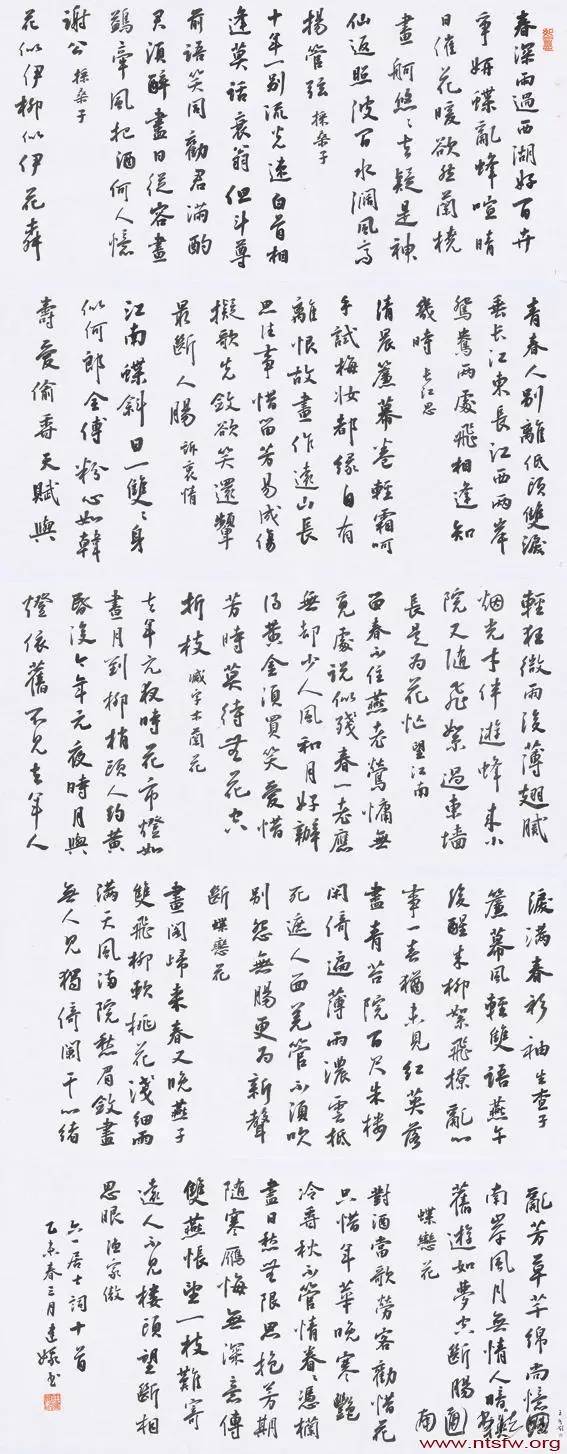 春深雨過西湖好百卉
爭妍蝶亂蜂喧晴
日催花暖欲然蘭橈
畫舸悠悠去疑是神
仙返照波間水濶風高
揚管弦 採桑子
十年一別流光速白首相
逢莫話衰翁但斗尊
前語笑同勸君滿酌
君須醉盡日從容畫
鷁牽風把酒何人憶
謝公 採桑子
花似伊柳似伊花柳
青春人別離低頭雙淚
垂長江東長江西兩岸
鴛鴦兩處飛相逢知
幾時 長相思
清晨簾幕卷輕霜呵
手試梅妝都緣自有
離恨故畫作遠山長
思往事惜留芳易成傷
擬歌先斂欲笑還顰
最斷人腸 訴衷情
江南蝶斜日一雙雙身
似何郎全傅粉心如韓
壽愛偷香天賦與
輕狂微雨後薄翅膩
烟光才伴遊蜂來小
院又隨飛絮過東墻
長是為花忙 望江南
留春不住燕老鶯慵無
覓處說似殘春一老應
無却少人風和月好辦
得黃金須買笑愛惜
芳時莫待無花空
折枝 减字木蘭花
去年元夜時花市燈如
晝月到柳梢頭人約黃
昏後今年元夜時月與
燈依舊不見去年人
淚滿春衫袖 生查子
簾幕風輕雙語燕午
後醒來柳絮飛撩亂心
事一春猶未見紅英落
盡青苔院百尺朱樓
閑倚遍薄雨濃雲抵
死遮人面羌管不須吹
別怨無腸更為新聲
斷 蝶戀花
畫閣歸來春又晚燕子
雙飛柳軟桃花淺細雨
滿天風滿院愁眉斂盡
無人見獨倚闌干心緒
亂芳草芊綿尚憶江
南岸風月無情人暗換
舊遊如夢空斷腸
蝶戀花
對酒當歌勞客勸惜花
只惜年華晚寒艷
冷香秋不管情眷眷憑欄
盡日愁無限思抱芳期
隨寒雁悔無深意傳
雙燕悵望一枝難寄
遠人不見樓頭望斷相
思眼 漁家傲
六一居士詞十首
乙未春三月建書
www.ntsfw.org